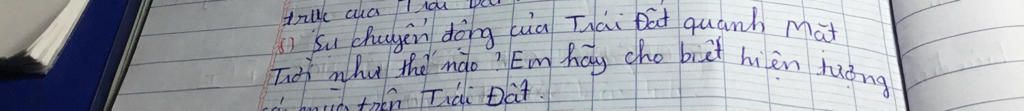 trục của Trái Đất
8) Sự chuyển động của Trái Đất quanh Mặt
Trời như thế nào? Em hãy cho biết hiện tượng
mùa trên Trái Đất.